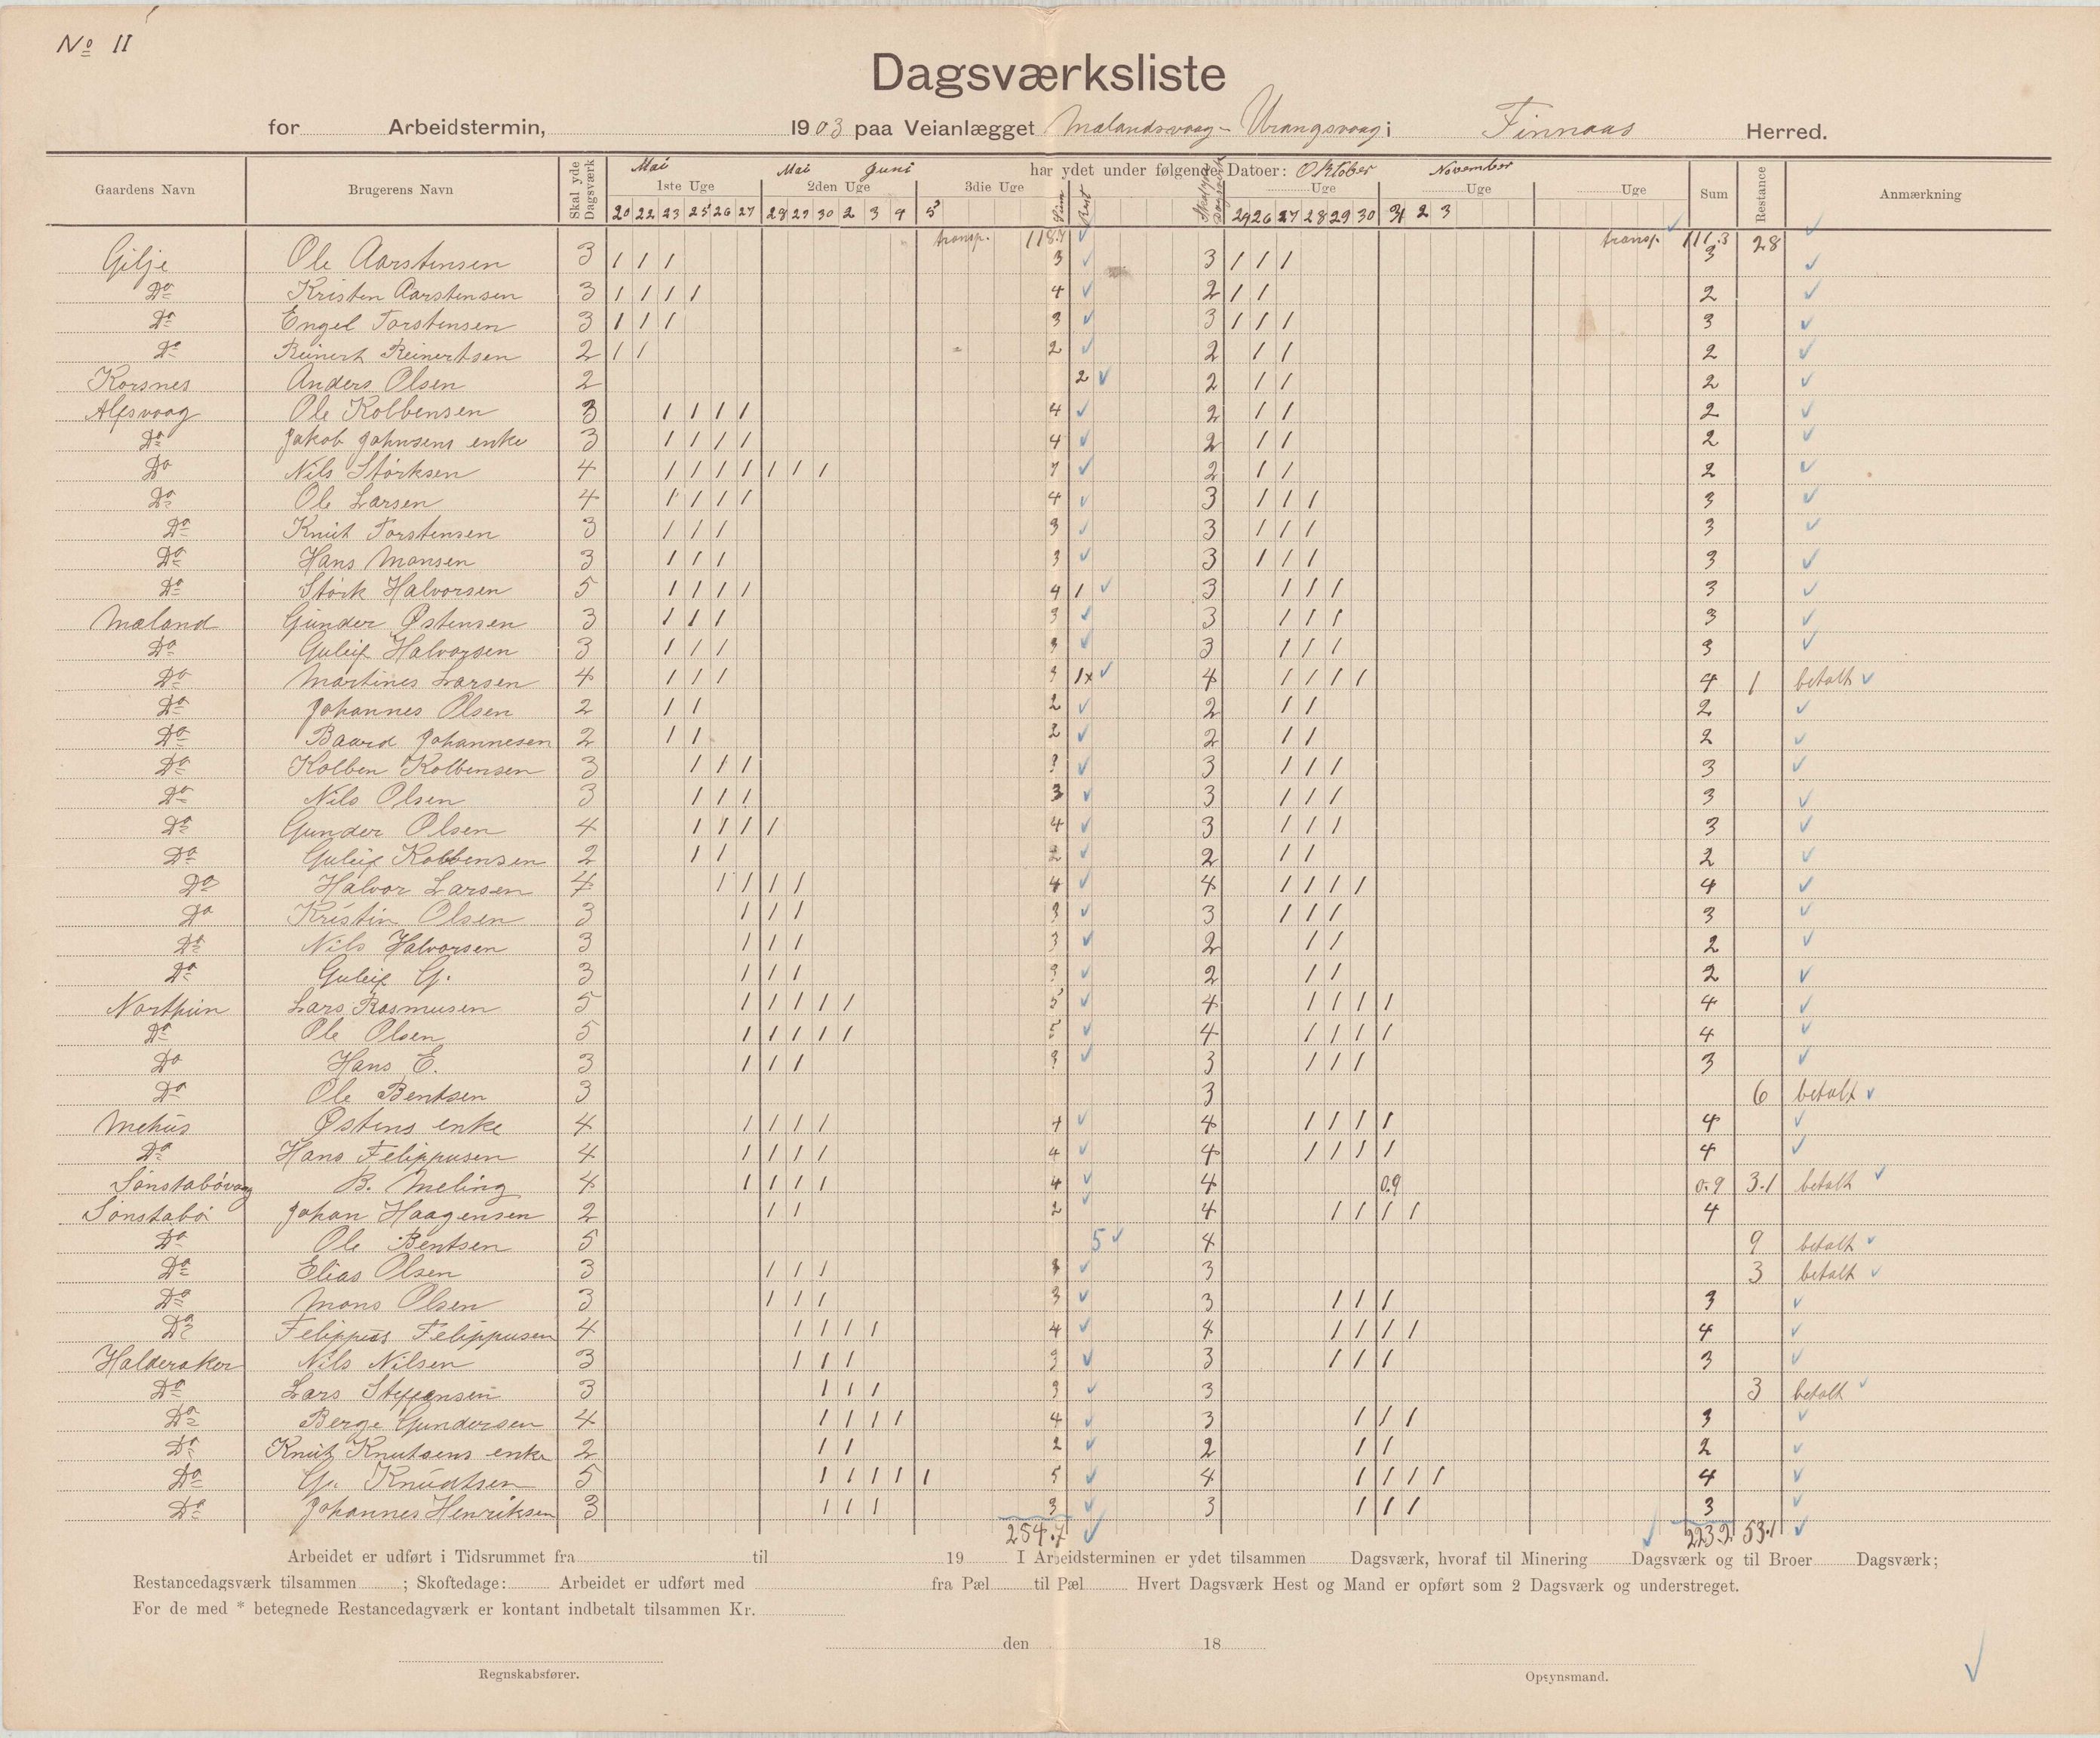 No II
Dagsværksliste
for Arbeidstermin, 1903 paa Veianlægget Mælandsvaag - Vrangsvaag i Finnaas Herred.
Gaardens Navn Brugerens Navn Skal yde Dagsværk har ydet under følgende Datoer: Sum Restance Anmærkning
Mai Mai Juni Oktober November
1ste Uge 2den Uge 3die Uge Sum Rest Uge Uge Uge
20 22 23 25 26 27 28 29 30 2 3 4 5 24 26 27 28 29 30 31 2 3
transp. 118.7 transp. 111.3 28
Gilje Ole Aarstensen 3 / / / 3 3 / / / 3
Do Kristen Aarstensen 3 / / / / 4 2 / / 2
Do Engel Torstensen 3 / / / 3 3 / / / 3
Do Reinert Reinertsen 2 / / 2 2 / / 2
Korsnes Anders Olsen 2 2 2 / / 2
Alfsvaag Ole Kolbensen 3 / / / / 4 2 / / 2
Do Jakob Johnsens enke 3 / / / / 4 2 / / 2
Do Nils Størksen 4 / / / / / / / 7 2 / / 2
Do Ole Larsen 4 / / / / 4 3 / / / 3
Do Knut Torstensen 3 / / / 3 3 / / / 3
Do Hans Monsen 3 / / / 3 3 / / / 3
Do Størk Halvorsen 5 / / / / 4 1 3 / / / 3
Mæland Gunder Østensen 3 / / / 3 3 / / / 3
Do Guleif Halvorsen 3 / / / 3 3 / / / 3
Do Martines Larsen 4 / / / 3 1x 4 / / / / 4 1 betalt
Do Johannes Olsen 2 / / 2 2 / / 2
Do Baard Johannesen 2 / / 2 2 / / 2
Do Kolben Kolbensen 3 / / / 3 3 / / / 3
Do Nils Olsen 3 / / / 3 3 / / / 3
Do Gunder Olsen 4 / / / / 4 3 / / / 3
Do Guleif Kolbensen 2 / / 2 2 / / 2
Do Halvor Larsen 4 / / / / 4 4 / / / / 4
Do Kristin Olsen 3 / / / 3 3 / / / 3
Do Nils Halvorsen 3 / / / 3 2 / / 2
Do Guleif G. 3 / / / 3 2 / / 2
Nortun Lars Rasmusen 5 / / / / / 5 4 / / / / 4
Do Ole Olsen 5 / / / / / 5 4 / / / / 4
Do Hans E. 3 / / / 3 3 / / / 3
Do Ole Bentsen 3 3 6 betalt
Mehus Østens enke 4 / / / / 4 4 / / / / 4
Do Hans Felippusen 4 / / / / 4 4 / / / / 4
Sønstabøvaag B. Meling 4 / / / / 4 4 0.9 0.9 3.1 betalt
Sønstabø Johan Haagensen 2 / / 2 4 / / / / 4
Do Ole Bentsen 5 5 4 9 betalt
Do Elias Olsen 3 / / / 3 3 3 betalt
Do Mons Olsen 3 / / / 3 3 / / / 3
Do Felippus Felippusen 4 / / / / 4 4 / / / / 4
Halderaker Nils Nilsen 3 / / / 3 3 / / / 3
Do Lars Steffensen 3 / / / 3 3 3 betalt
Do Berge Gundersen 4 / / / / 4 3 / / / 3
Do Knut Knutsens enke 2 / / 2 2 / / 2
Do G. Knudtsen 5 / / / / / 5 4 / / / / 4
Do Johannes Henriksen 3 / / / 3 3 / / / 3
254.7 223.2 53.1
Arbeidet er udført i Tidsrummet fra til 19 I Arbeidsterminen er ydet tilsammen Dagsværk, hvoraf til Minering Dagsværk og til Broer Dagsværk;
Restancedagsværk tilsammen ; Skoftedage: Arbeidet er udført med fra Pæl til Pæl Hvert Dagsværk Hest og Mand er opført som 2 Dagsværk og understreget.
For de med * betegnede Restancedagværk er kontant indbetalt tilsammen Kr.
den 18
Regnskabsfører. Opsynsmand.